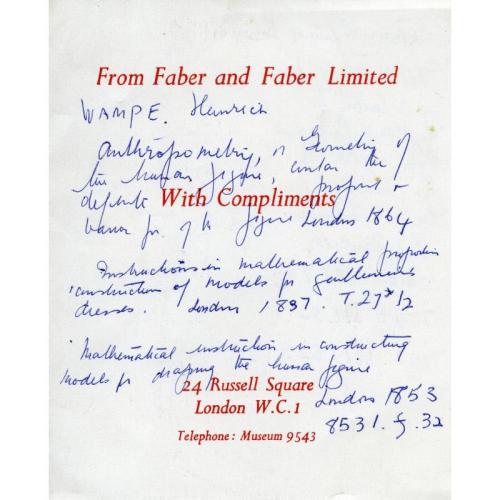 From Faber and Faber Limited
WAMPE. Heinrich
Anthropometry, or Geometry of
the human figure, contain the
defects
With Compliments
of the figure London 1864
Instructions in mathematical proportion
construction of models for gentlemens
dresses. London 1837. T.27*/2
Mathematical instruction in constructing
models for draping the human figure
24 Russell Square
London W.C.1
London 1853
8531. f. 32
Telephone: Museum 9543